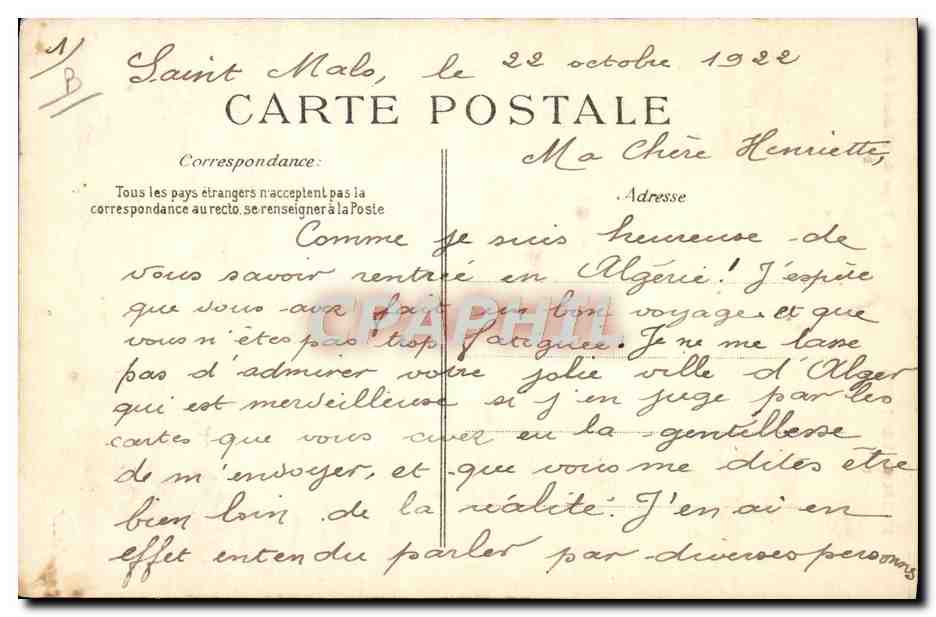 1/
B
Saint Malo, le 22 octobre 1922
CARTE POSTALE
Ma Chère Henriette,
Correspondance:
Tous les pays étrangers n'acceptent pas la
correspondance au recto, se renseigner à la Poste
Adresse
Comme je suis heureuse de
vous savoir rentrée en Algérie! J'espère
que vous avez fait un bon voyage et que
vous n'êtes pas trop fatiguée. Je ne me lasse
pas d'admirer votre jolie ville d'Alger
qui est merveilleuse si j'en juge par les
cartes que vous avez eu la gentillesse
de m'envoyer, et que vous me dites être
bien loin de la réalité. J'en ai en
effet entendu parler par diverses personnes
CPAPHIL